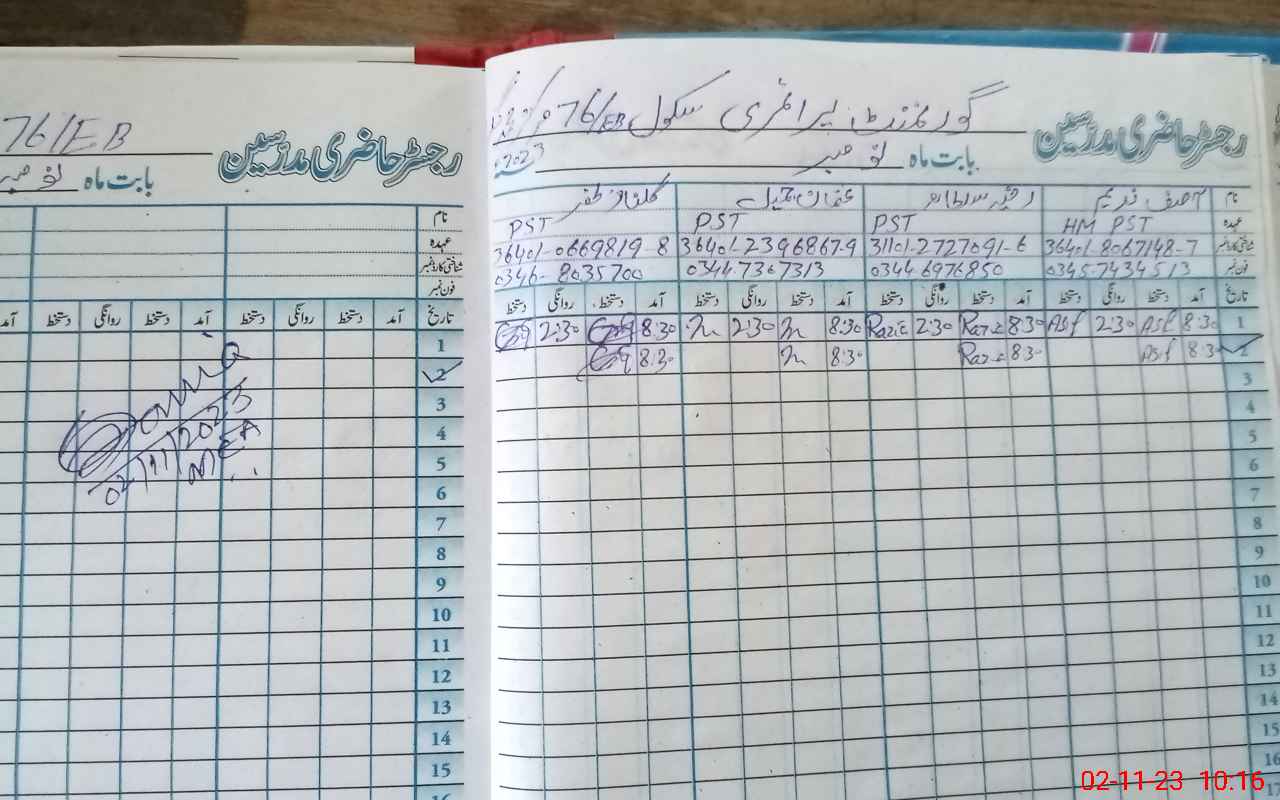 76/EB
رجسٹر حاضری مدرسین
بابت ماہ نومبر
نام
عہدہ
شناختی کارڈ نمبر
فون نمبر
تاریخ آمد دستخط روانگی دستخط آمد دستخط روانگی دستخط آمد
1
2
3
4
5
6
7
8
9
10
11
12
13
14
15
16
02/11/2023
MEA
گورنمنٹ پرائمری سکول 76/EB
رجسٹر حاضری مدرسین
بابت ماہ نومبر 2023
نام آصف ندیم رضیہ سلطانہ عثمان جمیل گلناز ظفر
عہدہ HM PST PST PST PST
شناختی کارڈ نمبر 36401-8067148-7 31101-2727091-6 36401-2396867-9 36401-0669819-8
فون نمبر 0345-7434513 0344-6976850 0344-7307313 0346-8035700
تاریخ آمد دستخط روانگی دستخط آمد دستخط روانگی دستخط آمد دستخط روانگی دستخط آمد دستخط روانگی دستخط
1 8:30 Asf 2:30 Asf 8:30 Razia 2:30 Razia 8:30 2:30 8:30 2:30
2 8:30 Asf 8:30 Razia 8:30 8:30
3
4
5
6
7
8
9
10
11
12
13
14
15
16
17
02-11-23 10:16